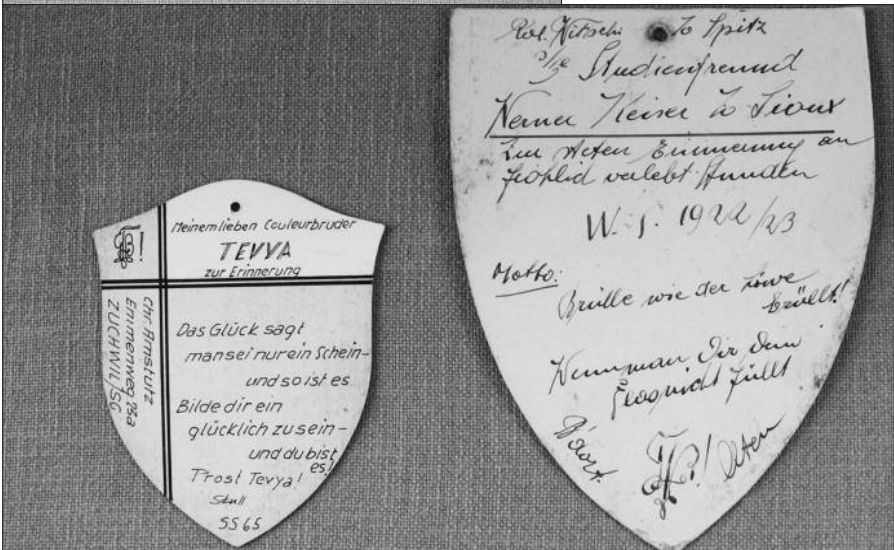 Meinem lieben Couleurbruder
TEVYA
zur Erinnerung
Chr Amstutz
Emmenweg 28a
ZUCHWIL/SG
Das Glück sagt
man sei nur ein Schein-
und so ist es
Bilde dir ein
glücklich zu sein-
und du bist
es!
Prost Tevya!
SS 65
to Spitz
Studienfreund
Werner Keiser to Sioux
zur steten Erinnerung an
fröhlich verlebt Stunden
W. S. 1922/23
Motto:
Brülle wie der Löwe
brüllt!
Wenn man Dir dein
nicht füllt
Olten